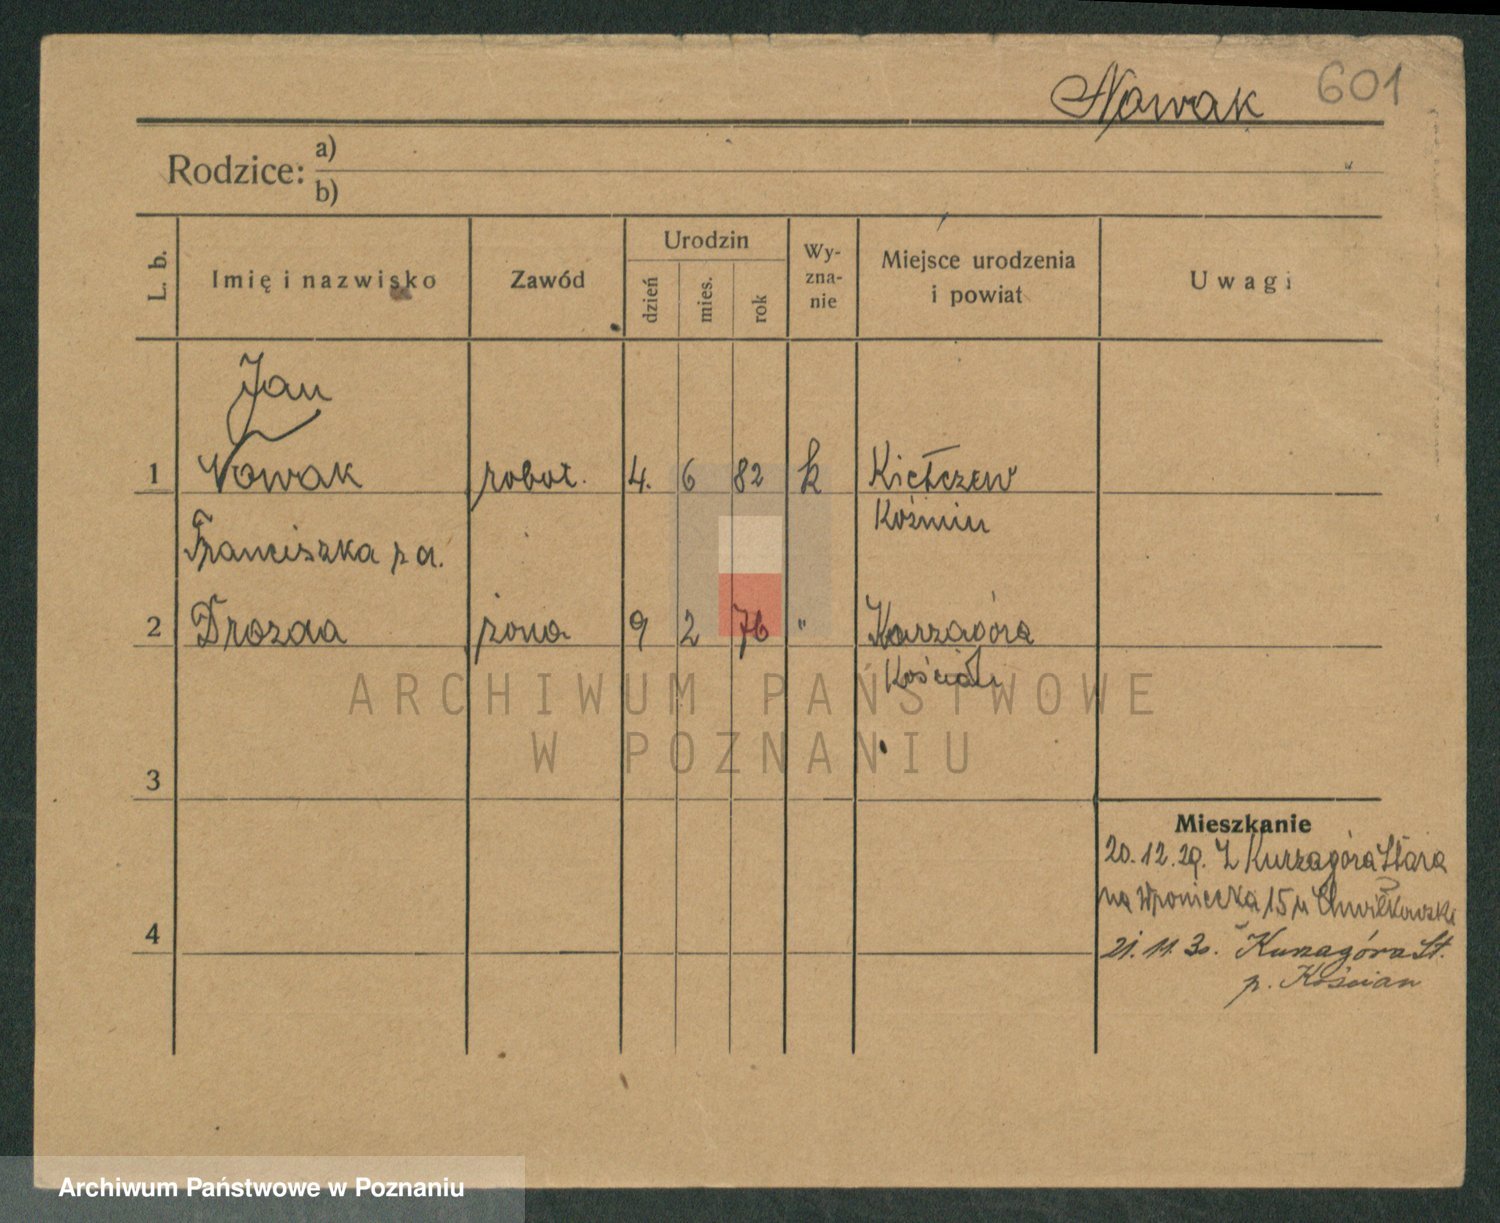 Nowak 601
Rodzice: a)
b)
L. b. Imię i nazwisko Zawód Urodzin dzień mies. rok Wy-zna-nie Miejsce urodzenia i powiat Uwagi
Jan
1 Nowak robot. 4. 6 82 k Kiełczew
Koźmin
Franciszka z d.
2 Drozda żona 9 2 76 " Kurzagóra
Kościan
ARCHIWUM PAŃSTWOWE
W POZNANIU
3
Mieszkanie
20.12.29. Z Kurzagóra Stara
na 15 u Chwiłkowski
4
21. 11. 30. Kurzagóra St.
p. Kościan
Archiwum Państwowe w Poznaniu